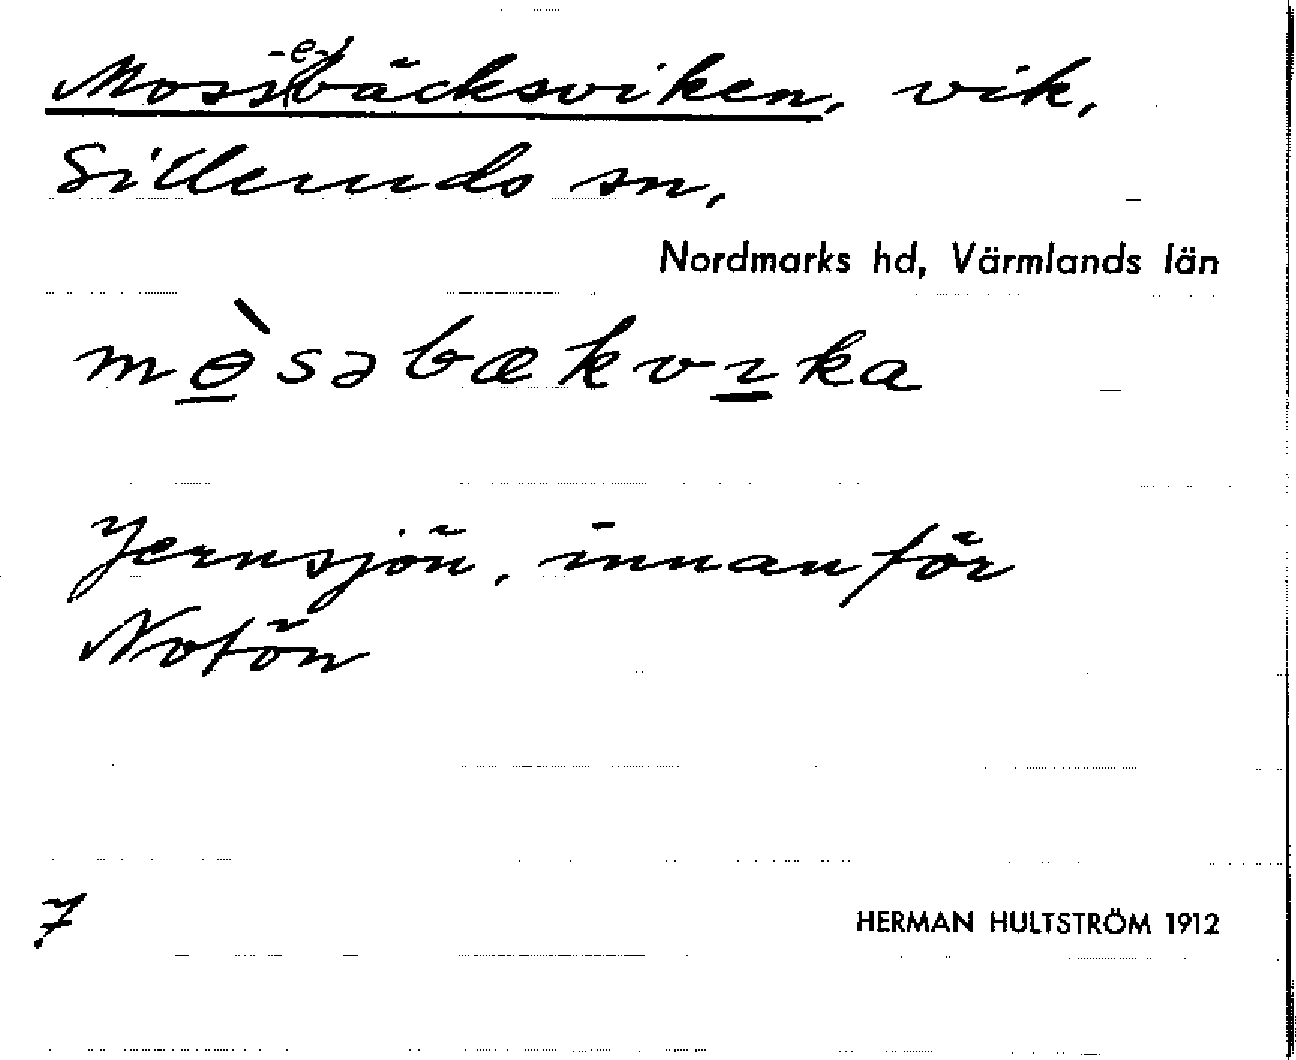 Moss-e-bäcksviken, vik,
Silleruds sn,
Nordmarks hd, Värmlands län
mɵ̀səbækvɪka
Jernsjön, innanför
Notön
7
HERMAN HULTSTRÖM 1912